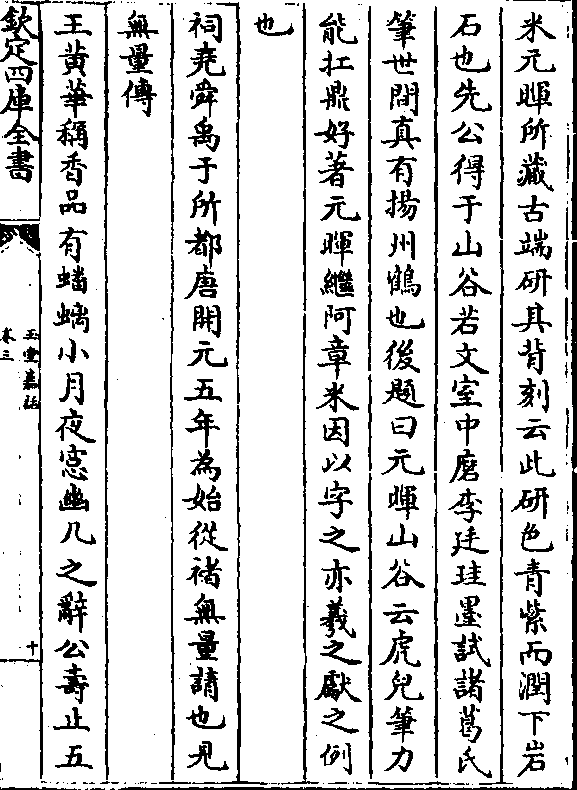 米元暉所藏古端研其背刻云此研色青紫而潤下岩
石也先公得于山谷若文室中磨李廷珪墨試諸葛氏
筆世間真有揚州鶴也後題曰元暉山谷云虎兒筆力
能扛鼎好著元暉繼阿章米因以字之亦羲之獻之例
也
祠堯舜禹于所都唐開元五年為始從褚無量請也見
無量傳
王黃華稱香品有蟠螭小月夜窓幽几之辭公壽止五
欽定四庫全書
玉堂嘉話
卷三
十